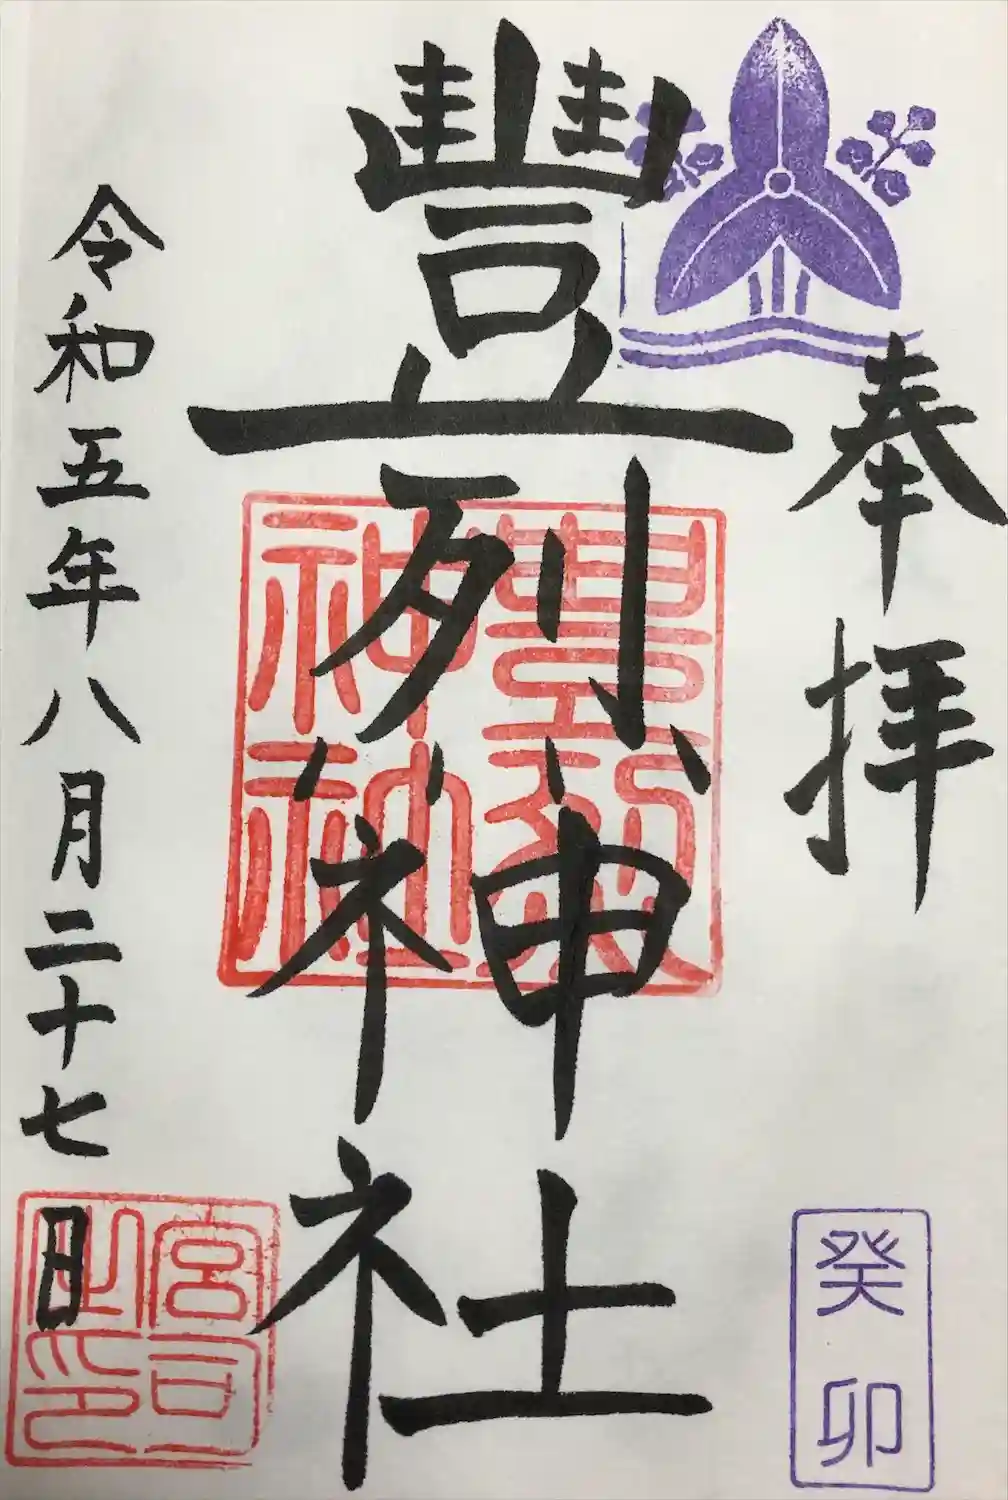 奉拝
癸卯
豐烈神社
豐烈神社
令和五年八月二十七日
宮司之印